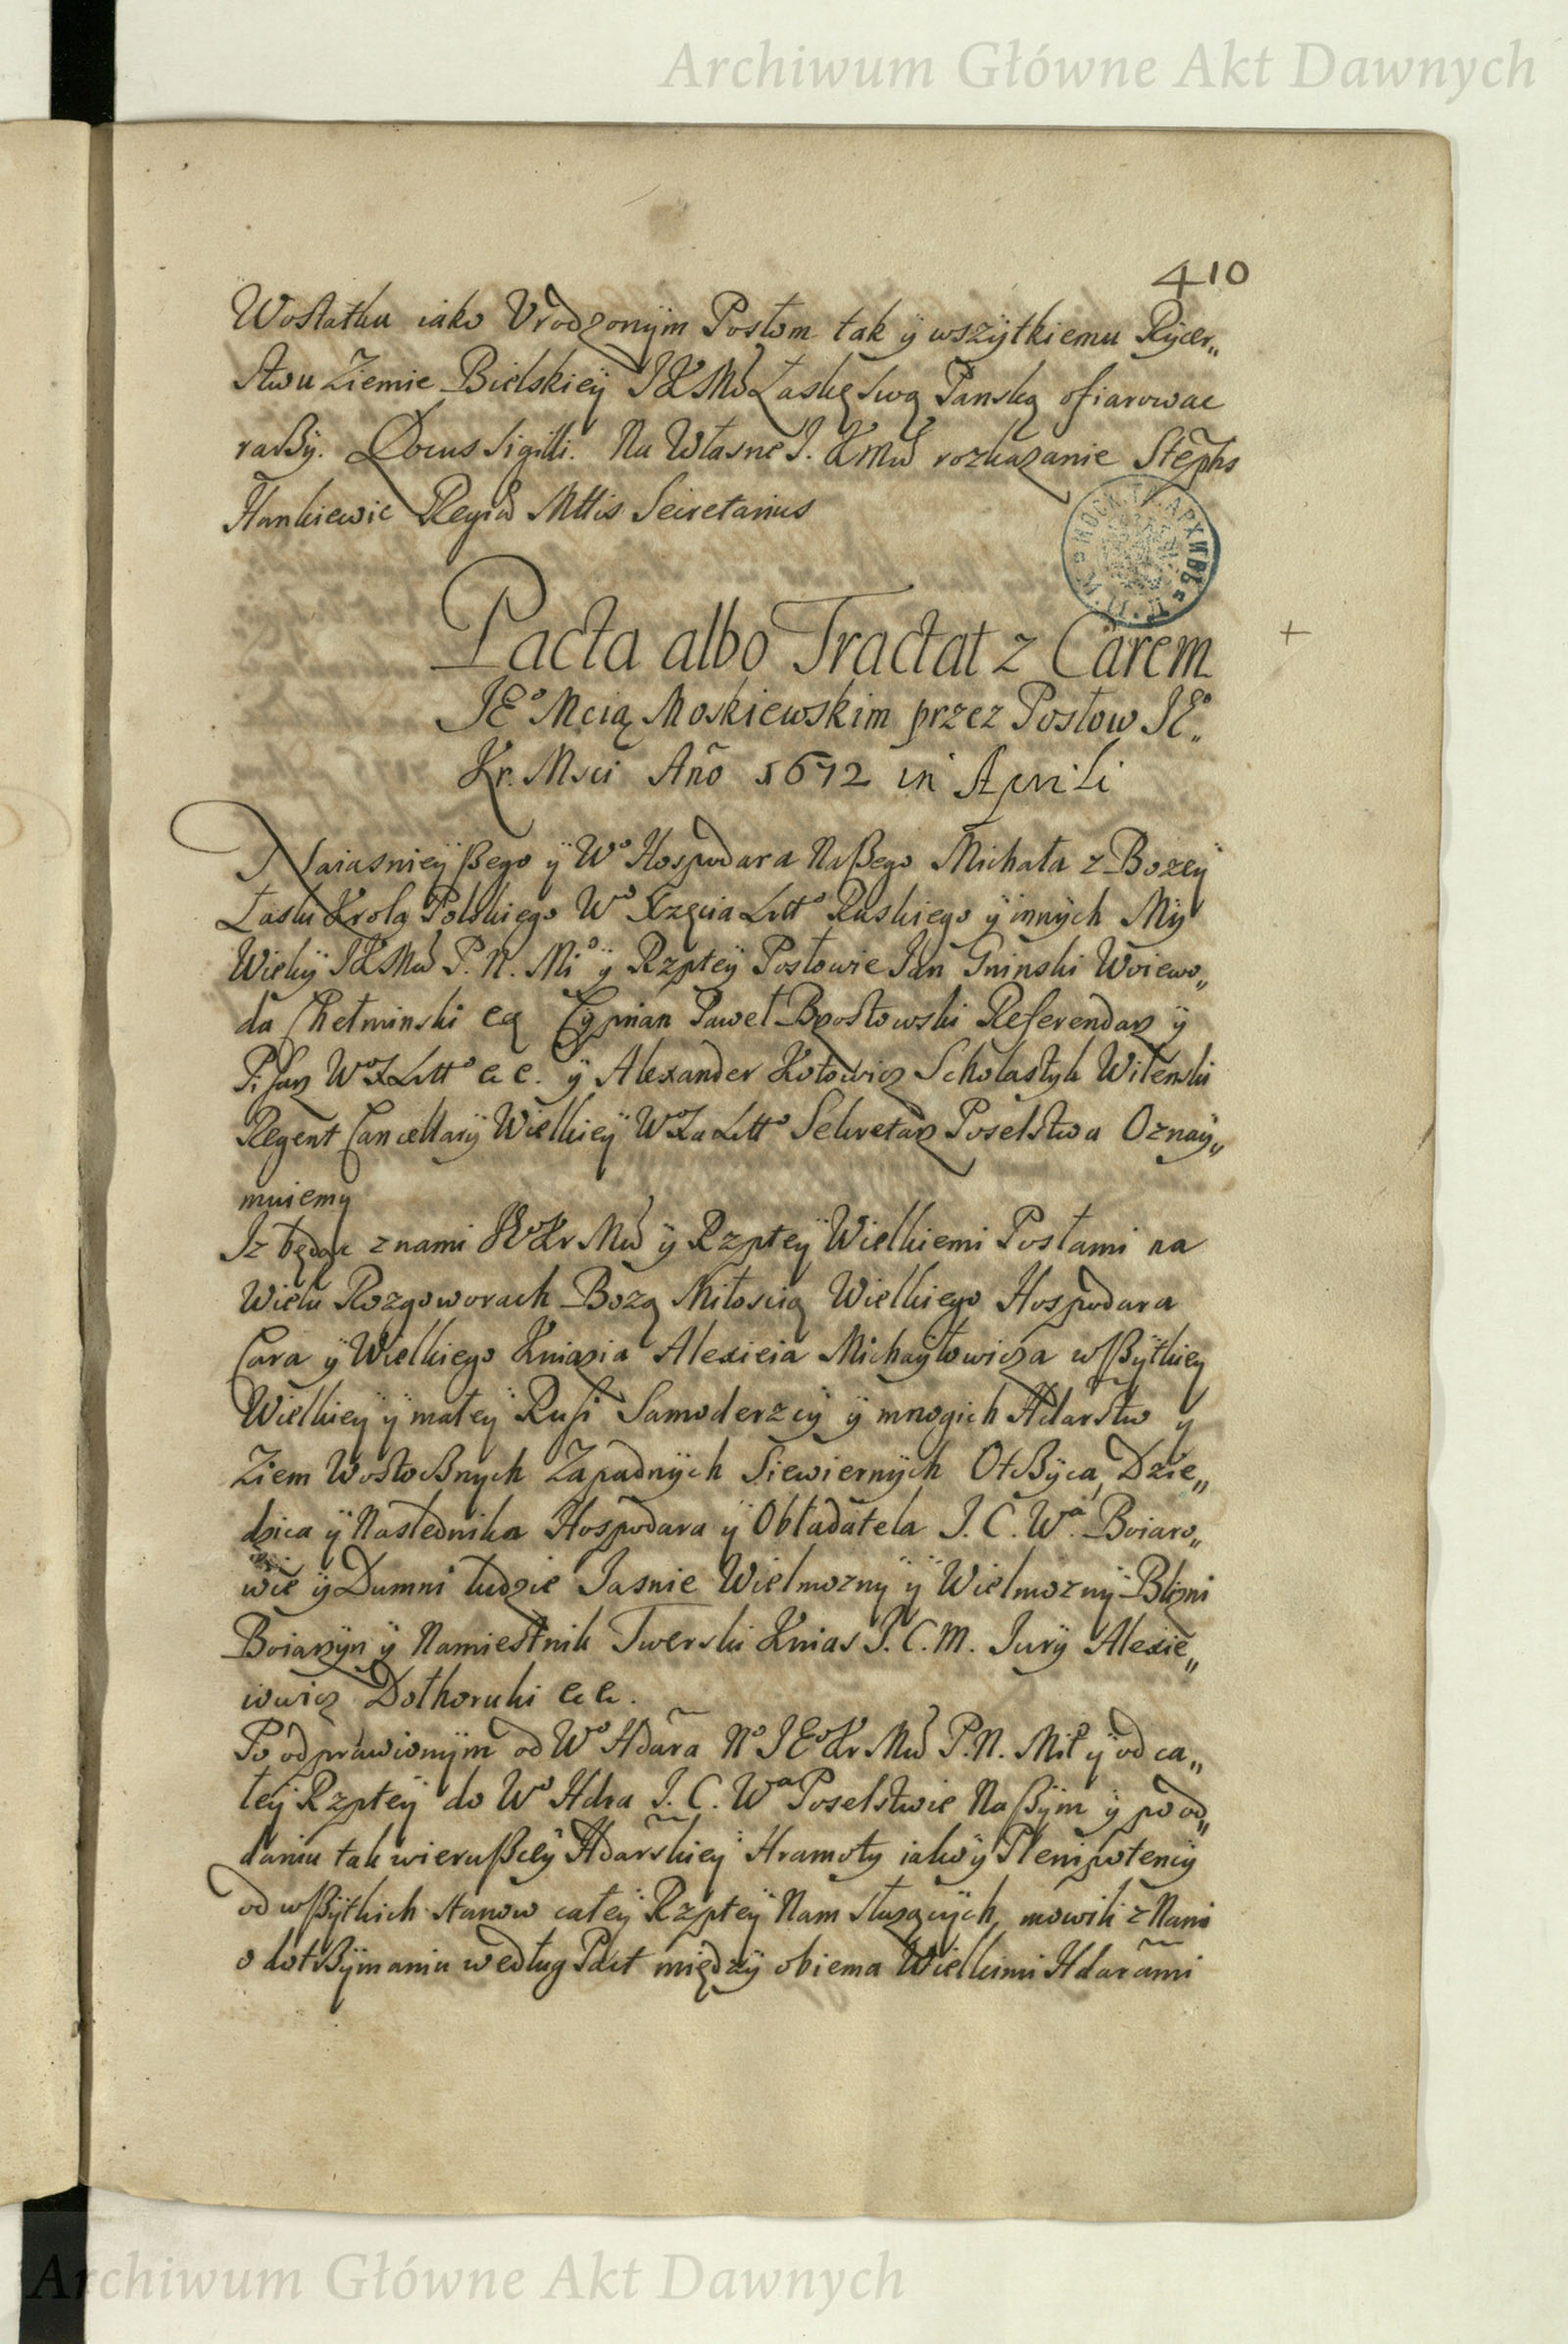 Archiwum Główne Akt Dawnych
410
Wostatku iako Vrodzonÿm Posłom tak ÿ wszÿtkiemu Rÿcer„
stwu Ziemie Bielskieÿ JKMć Łaskę swą Panską ofiarowac
raczÿ. Locus Sigilli. Na Własne J. KMć rozkazanie Stephs
Hankiewic Regiæ Mttis Secretarius
Pacta albo Tractat z Carem
JEº Mcią Moskiewskim przez Posłow JEº„
Kr. Msci Año 1672 in Aprili
Naiasnieÿßego ÿ Wº Hospodara Naßego Michała z Bozeÿ
Łaski Krola Polskiego Wº Xzęcia Littº Ruskiego ÿ innÿch Mÿ
Wielÿ JKMć P. N. Miº ÿ Rzpteÿ Posłowie Jan Gninski Woiewo„
da Chełminski Cypnian Paweł Brostowski Referendarz ÿ
Pisarz WºXLittº ec. ÿ Alexander Kotowicz Scholastyk Wilenski
Regent Cancellariÿ Wielkieÿ WºXa Littº Sekretarz Poselstwa Oznaÿ„
muiemy
Iz będąc znami Wº Kr Mć ÿ Rzpteÿ Wielkiemi Posłami na
Wielu Rozgoworach Bozą Miłoscią Wielkiego Hospodara
Cara ÿ Wielkiego Kniazia Alexieia Michayłowicza wßÿtkieÿ
Wielkieÿ ÿ małeÿ Rusi Samoderzcÿ ÿ mnogich Hdarstw y
Ziem Wostocßnych Zapadnÿch Siewiernÿch Otcßÿca, Dzie„
dzica ÿ Naslednika Hospodara ÿ Obładatela J. C. Wª. Boiaro„
wie ÿ Dumni ludzie Jasnie Wielmoznÿ ÿ Wielmoznÿ Blizni
Boiarÿn ÿ Namiestnik Twerski Knias J. C. M. Jurÿ Alexie„
iowicz Dołhoruki ec.
Po odprawionÿm od Wº Hdara Nº JEº Kr Mć P. N. Mił ÿ od ca„
łeÿ Rzpteÿ do Wº Hdra J. C. Wª Poselstwie Naßÿm ÿ po od„
daniu tak wierußceÿ Hdarskieÿ Hramoty iako ÿ Plenipotencÿ
od wßÿtkich stanow całeÿ Rzpteÿ Nam słuzącÿch, mowili z Nami
o dotrzÿmaniu według Pact międzÿ obiema Wielkimi Hdarami
Archiwum Główne Akt Dawnych